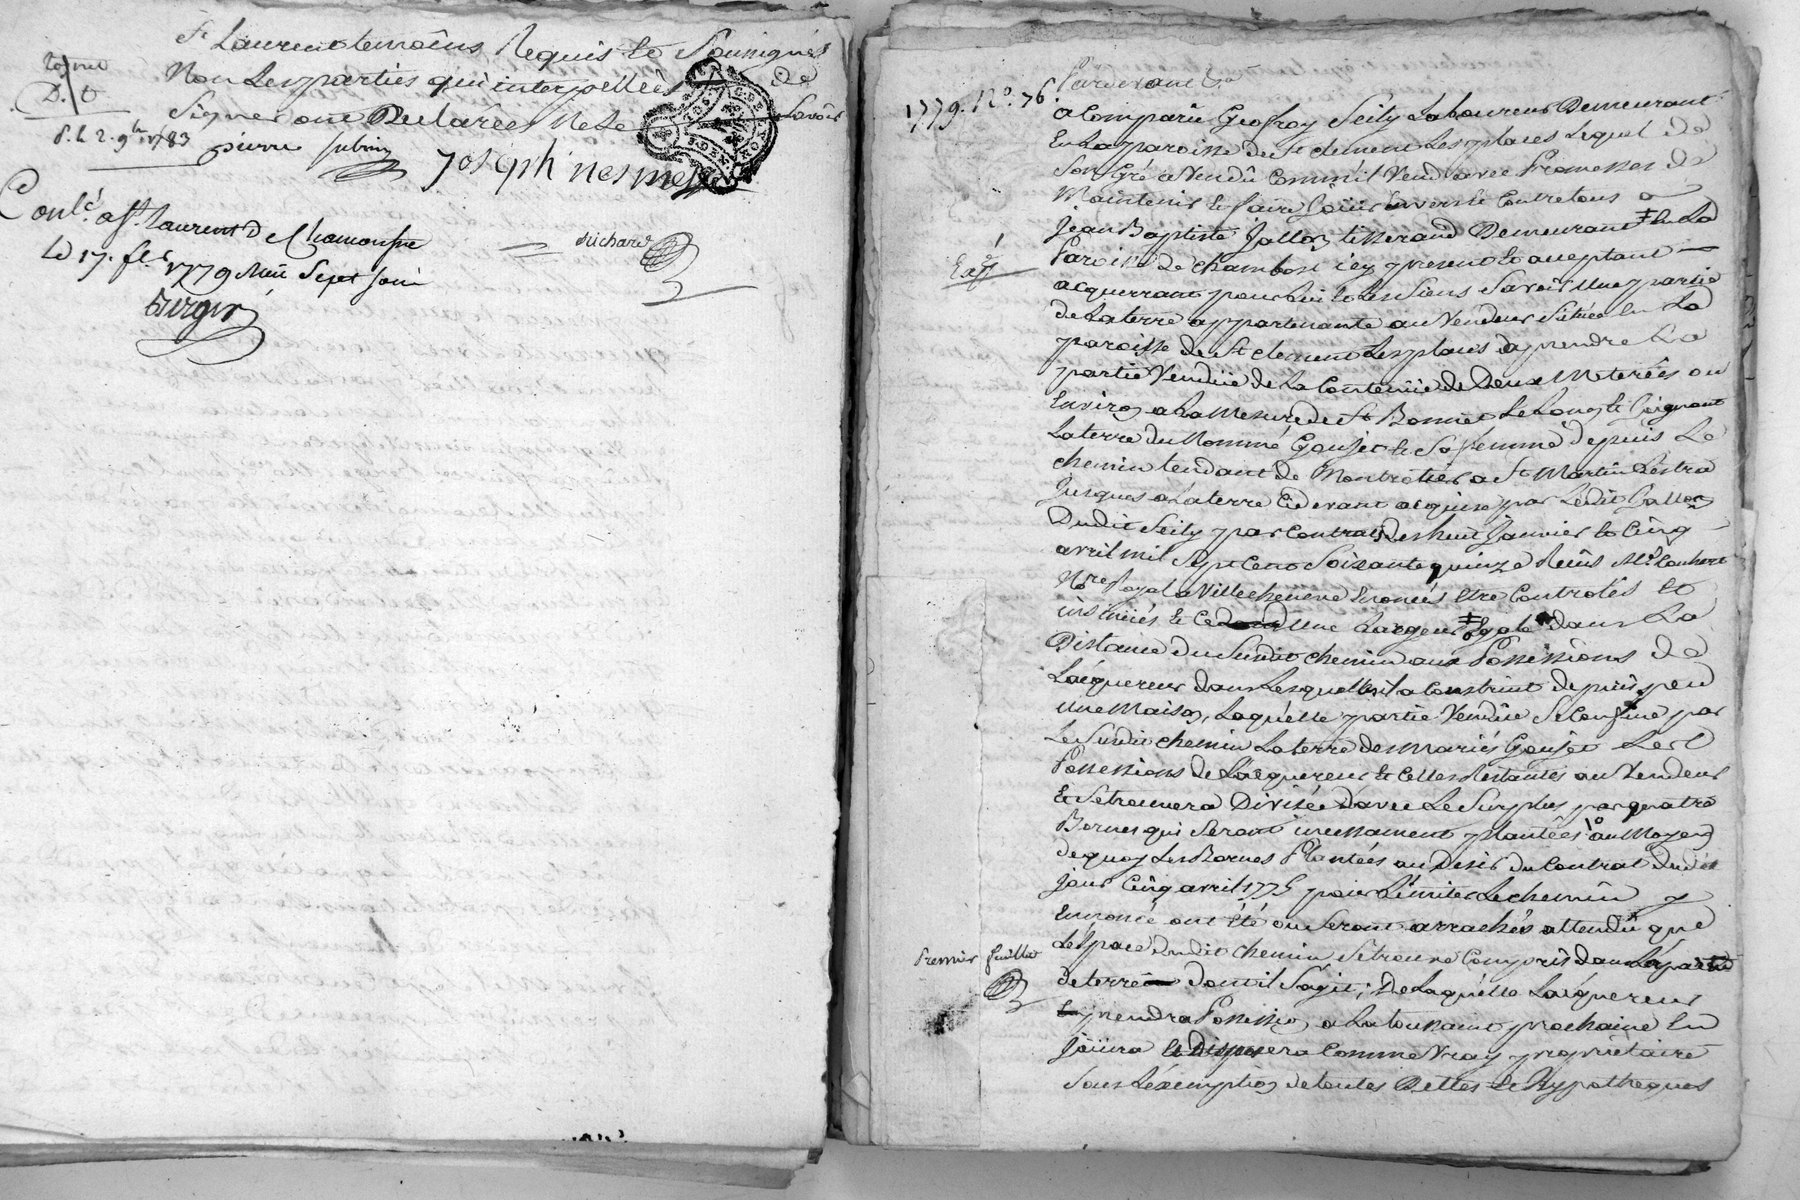 St Laurent temoins Requis et Soussignés
Non les parties qui interpellées de
Signer ont Declarées Ne le Savoir
D. O
pierre subrin
joseph nesme
Richard
Conlé. a St. Laurent De Chamousset
Le 17. fer. 1779 Reçu Sept sous
1779. No. 76.
Pardevant &a
a Comparû Geofray Seily Laboureur Demeurant
En La paroisse de St clement Les places Lequel de
Son Gré a Vendû Comme il Vend avec Promesses de
Maintenir et faire Joüir Envers et Contre tous a
Jean Baptiste Jallon tisserand Demeurant En La
Paroisse de chambost icy present et acceptant
acquerrant pour Lui et Les Siens Savoir Une partie
de La terre appartenante au Vendeur Située En La
paroisse de St clement Les places a prendre La
partie Vendüe de La Contenüe de Deux Meterées ou
Environ a La Mesure de St Bonnet Le Long et Joignant
La terre du Nommé Goujet et Sa femme depuis Le
chemin tendant de Montrotier a St Martin Lestra
Jusques a La terre Cidevant acquise par Ledit Jallon
Dudit Seily par Contrats des huit Janvier et Cinq
avril mil Sept Cent Soixante quinze Reçus Me.
Nore Royal a Villechenene Enoncés Etre Controlés et
insinués et Ce Une Largeur Egale dans La
Distance du Susdit chemin aux Possessions de
Lacquereur dans Lesquelles il a Construit depuis peu
Une Maison, Laquelle partie Vendüe Se Confine par
Le Susdit chemin La terre des Mariés Goujet Les
Possessions de Lacquereur et Celles Restantes au Vendeur
Et Se trouvera Divisée d'avec Le Surplus par quatre
Bornes qui Seront incessament plantées au Moyen
de quoy Les Bornes Plantées au Desir du Contrat dudit
jour Cinq avril 1775 pour Limiter Le chemin y
Enoncé ont Eté ou Seront arrachés attendu que
Lespace dudit chemin Se trouve Compris dans La partie
de terre dont il S'agit; De Laquelle Lacquereur
prendra Possession a La toussaint prochaine En
Joüira et Disposera Comme Vray proprietaire
Sous Léxemption de toutes Dettes et Hypotheques
Premier feuillet